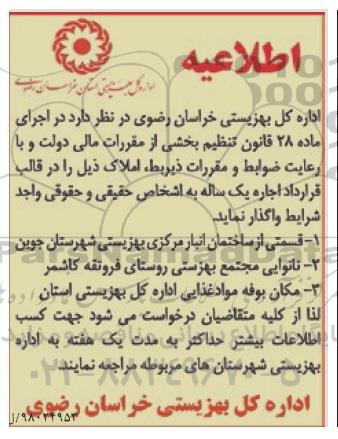 اطلاعیه
اداره کل بهزیستی استان خراسان رضوی
اداره کل بهزیستی خراسان رضوی در نظر دارد در اجرای
ماده ۲۸ قانون تنظیم بخشی از مقررات مالی دولت و با
رعایت ضوابط و مقررات ذیربط، املاک ذیل را در قالب
قرارداد اجاره یک ساله به اشخاص حقیقی و حقوقی واجد
شرایط واگذار نماید.
۱- قسمتی از ساختمان انبار مرکزی بهزیستی شهرستان جوین
۲- نانوایی مجتمع بهزستی روستای فروتقه کاشمر
۳- مکان بوفه موادغذایی اداره کل بهزیستی استان
لذا از کلیه متقاضیان درخواست می شود جهت کسب
اطلاعات بیشتر حداکثر به مدت یک هفته به اداره
بهزیستی شهرستان های مربوطه مراجعه نمایند.
اداره کل بهزیستی خراسان رضوی
۹۸۰۲۴۹۵۳/ل
۰۲۱-۸۸۳۴۹۶۷۰-۵